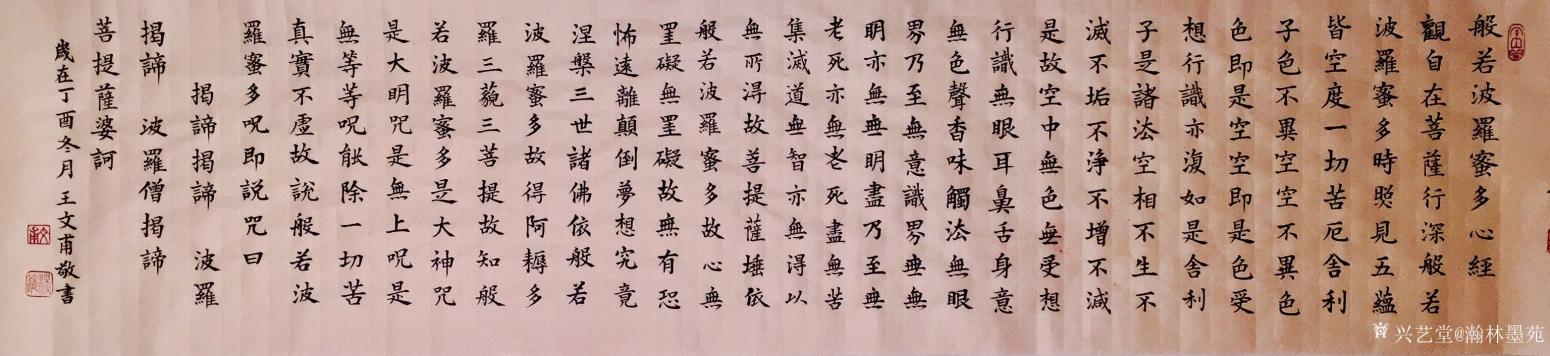 般若波羅蜜多心經
觀自在菩薩行深般若
波羅蜜多時照見五蘊
皆空度一切苦厄舍利
子色不異空空不異色
色即是空空即是色受
想行識亦復如是舍利
子是諸法空相不生不
滅不垢不淨不增不減
是故空中無色無受想
行識無眼耳鼻舌身意
無色聲香味觸法無眼
界乃至無意識界無無
明亦無無明盡乃至無
老死亦無老死盡無苦
集滅道無智亦無得以
無所得故菩提薩埵依
般若波羅蜜多故心無
罣礙無罣礙故無有恐
怖遠離顛倒夢想究竟
涅槃三世諸佛依般若
波羅蜜多故得阿耨多
羅三藐三菩提故知般
若波羅蜜多是大神咒
是大明咒是無上呪是
無等等呪能除一切苦
真實不虛故說般若波
羅蜜多呪即說咒曰
揭諦揭諦 波羅
揭諦 波羅僧揭諦
菩提薩婆訶
歲在丁酉冬月王文甫敬書
兴艺堂@瀚林墨苑